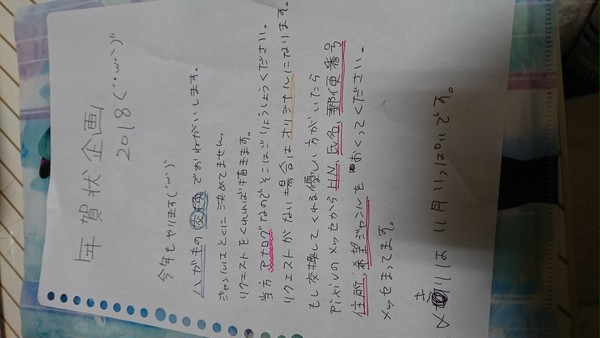 年賀状企画
2018 (･･ω･･)
今年もやります(´ω`)
ハガキの交換でおねがいします。
ジャンルはとくに決めてません。
リクエストをくれれば描きます。
当方アナログなのでそこはごりょうしょうください。
リクエストがない場合はオリジナルになります。
もし交換してくれる優しい方がいたら
Pixivのメッセから HN、氏名、郵便番号
住所、希望ジャンルをおくってください。
メッセまってます。
〆キリは 11月いっぱいです。